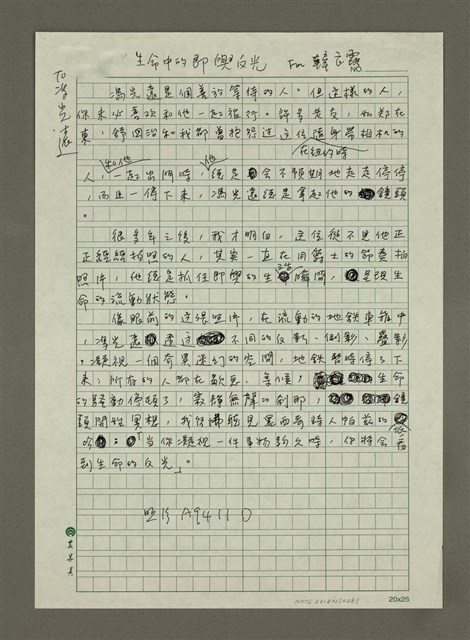 生命中的即興反光 Fm 韓良露
NO.
TO 馮光遠
馮光遠是個善於等待的人。但這樣的人，
你未必喜歡和他一起旅行。許多朋友，如鄭在
東、舒國治和我都曾抱怨過這位隨身帶相機的
在紐約時
人，和他一起出門時，他總是會不預期地走走停停
，而且一停下來，馮光遠總是拿起他的鏡頭
。
很多年之後，我才明白，這位從不是他正
正經經拍照的人，其實一直在用爵士的節奏拍
照片，他總是抓住即興的生活瞬間，是浸生
命的流動狀態。
像眼前的這張照片，在流動的地鐵車廂中
，馮光遠透過不同的反影、倒影、疊影
，凝視一個奇異迷幻的空間，地鐵暫時停了下
來，所有的人都在歇息、等候，生命
的騷動停頓了，寂靜無聲的剎那，鏡
頭開始冥想，我彷彿聽見墨西哥詩人帕茲的
吟：「當你凝視一件事物夠久時，你將會看
到生命的反光」。
照片 A9411 D
20x25